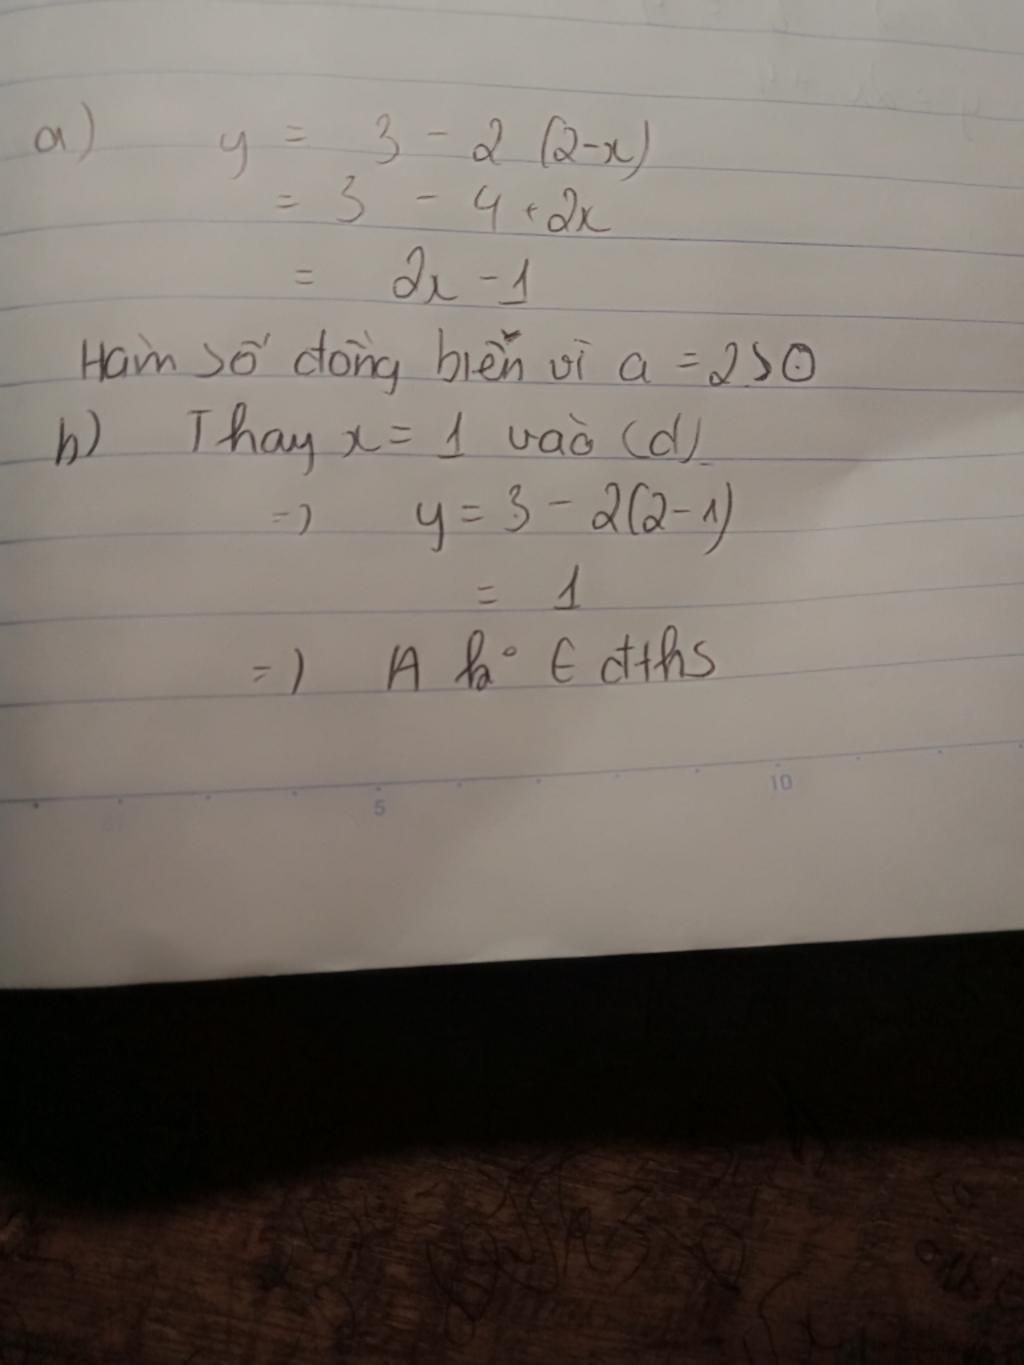 a) y = 3 - 2 (2-x)
= 3 - 4 + 2x
= 2x - 1
Hàm số đồng biến vì a = 2 > 0
b) Thay x = 1 vào (d)
=) y = 3 - 2(2-1)
= 1
=) A ko ∈ đths
5 10